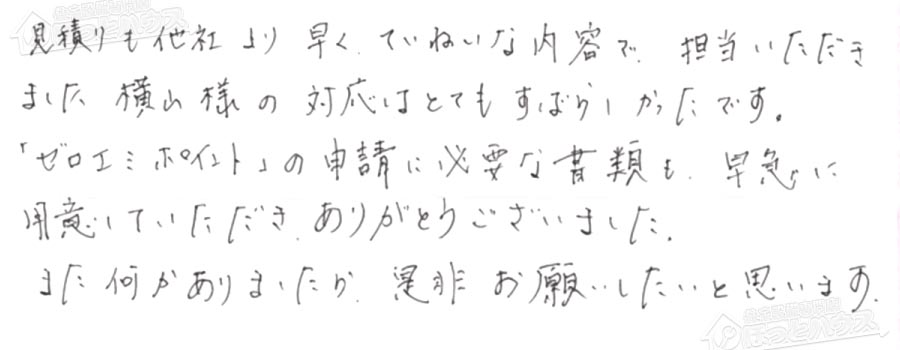 見積りも他社より早く、ていねいな内容で、担当いただき
ました横山様の対応はとてもすばらしかったです。
「ゼロエミポイント」の申請に必要な書類も、早急に
用意していただき、ありがとうございました。
また何かありましたら、是非お願いしたいと思います。
ほっとハウス